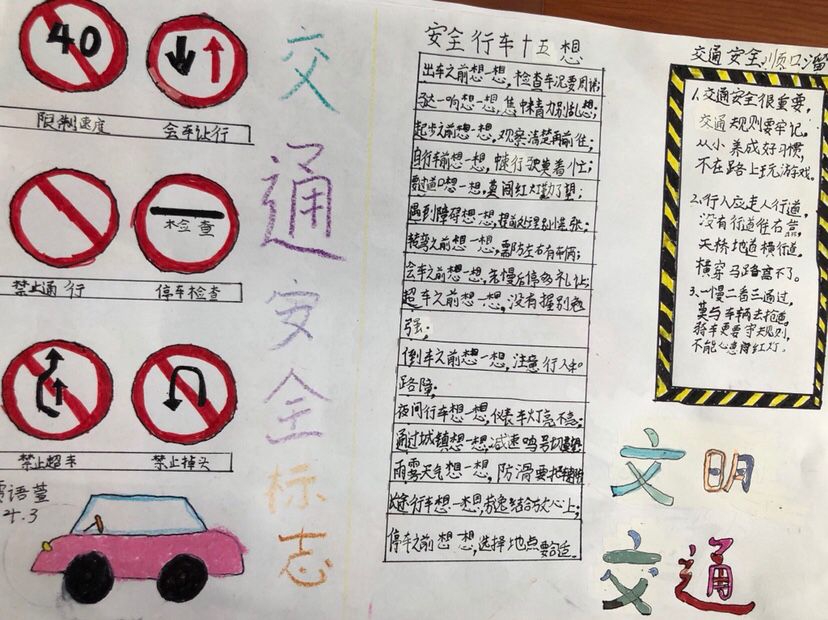 40
限制速度
会车让行
检查
禁止通行
停车检查
禁止超车
禁止掉头
语萱
4.3
交通安全标志
安全行车十五想
出车之前想一想,检查车况要周
一响想一想,集中精力别乱想;
起步之前想一想,观察清楚再前往;
自行车前想一想,中速行驶莫着忙;
要过道口想一想,莫闯红灯勤了望;
遇到障碍想一想,提前处理别慌张;
转弯之前想一想,需防左右有车辆;
会车之前想一想,先慢后停多礼让;
超车之前想一想,没有握别勉
强;
倒车之前想一想,注意行人和
路障;
夜间行车想一想,仪表车灯亮不亮;
通过城镇想一想,减速鸣号切
雨雾天气想一想,防滑要把
途行车想一想,劳逸结合放心上;
停车之前想想,选择地点要合适。
交通安全顺口溜
1.交通安全很重要,
交通规则要牢记。
从小养成好习惯,
不在路上玩游戏。
2.行人应走人行道,
没有行道往右靠,
天桥地道横行道。
横穿马路离不了。
3.一慢二看三通过,
莫与车辆去抢道。
骑车更要守规则,
不能心急闯红灯.
文明
交通